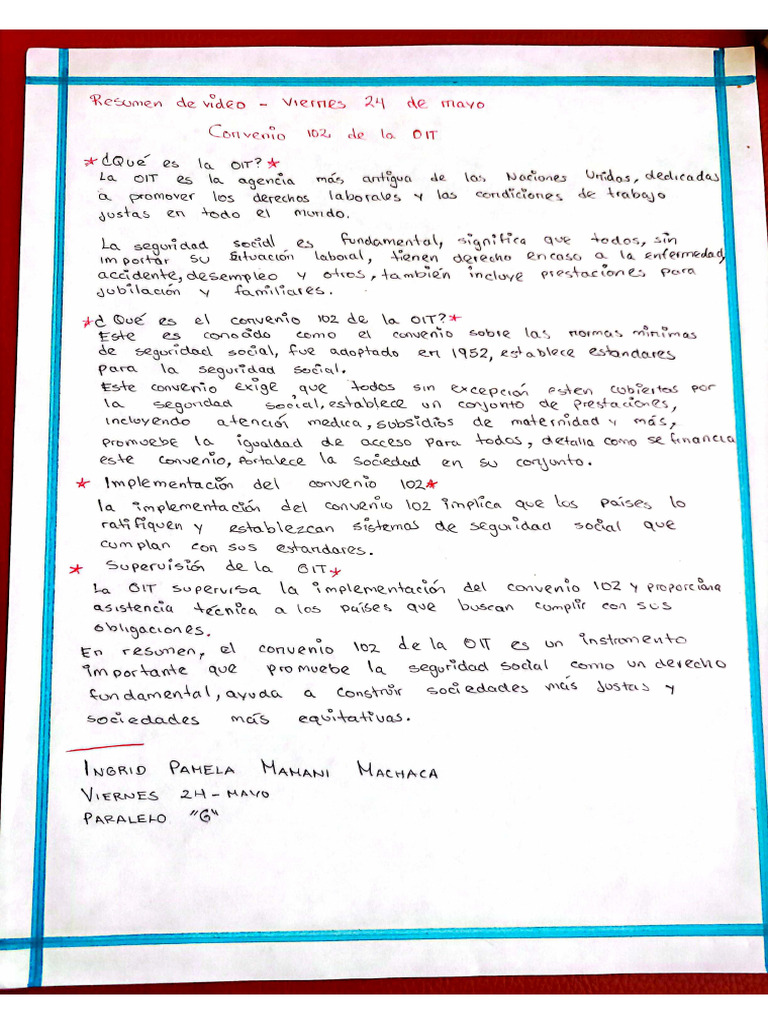 Resumen de video - Viernes 24 de mayo
Convenio 102 de la OIT
*¿Qué es la OIT?*
La OIT es la agencia más antigua de las Naciones Unidas, dedicadas
a promover los derechos laborales y las condiciones de trabajo
justas en todo el mundo.
La seguridad social es fundamental, significa que todos, sin
importar su situación laboral, tienen derecho encaso a la enfermedad,
accidente, desempleo y otros, también incluye prestaciones para
jubilación y familiares.
*¿Qué es el convenio 102 de la OIT?*
Este es conocido como el convenio sobre las normas minimas
de seguridad social, fue adoptado en 1952, establece estandares
para la seguridad social.
Este convenio exige que todos sin excepción esten cubiertas por
la seguridad social, establece un conjunto de prestaciones,
incluyendo atención medica, subsidios de maternidad y más,
promuebe la igualdad de acceso para todos, detalla como se financia
este convenio, fortalece la sociedad en su conjunto.
* Implementación del convenio 102*
la implementación del convenio 102 implica que los países lo
ratifiquen y establezcan sistemas de seguridad social que
cumplan con sus estandares.
* Supervisión de la OIT*
La OIT supervisa la implementación del convenio 102 y proporciona
asistencia técnica a los países que buscan cumplir con sus
obligaciones.
En resumen, el convenio 102 de la OIT es un instrumento
importante que promuebe la seguridad social como un derecho
fundamental, ayuda a construir sociedades más justas y
sociedades más equitativas.
INGRID PAMELA MAMANI MACHACA
VIERNES 24-MAYO
PARALELO "G"